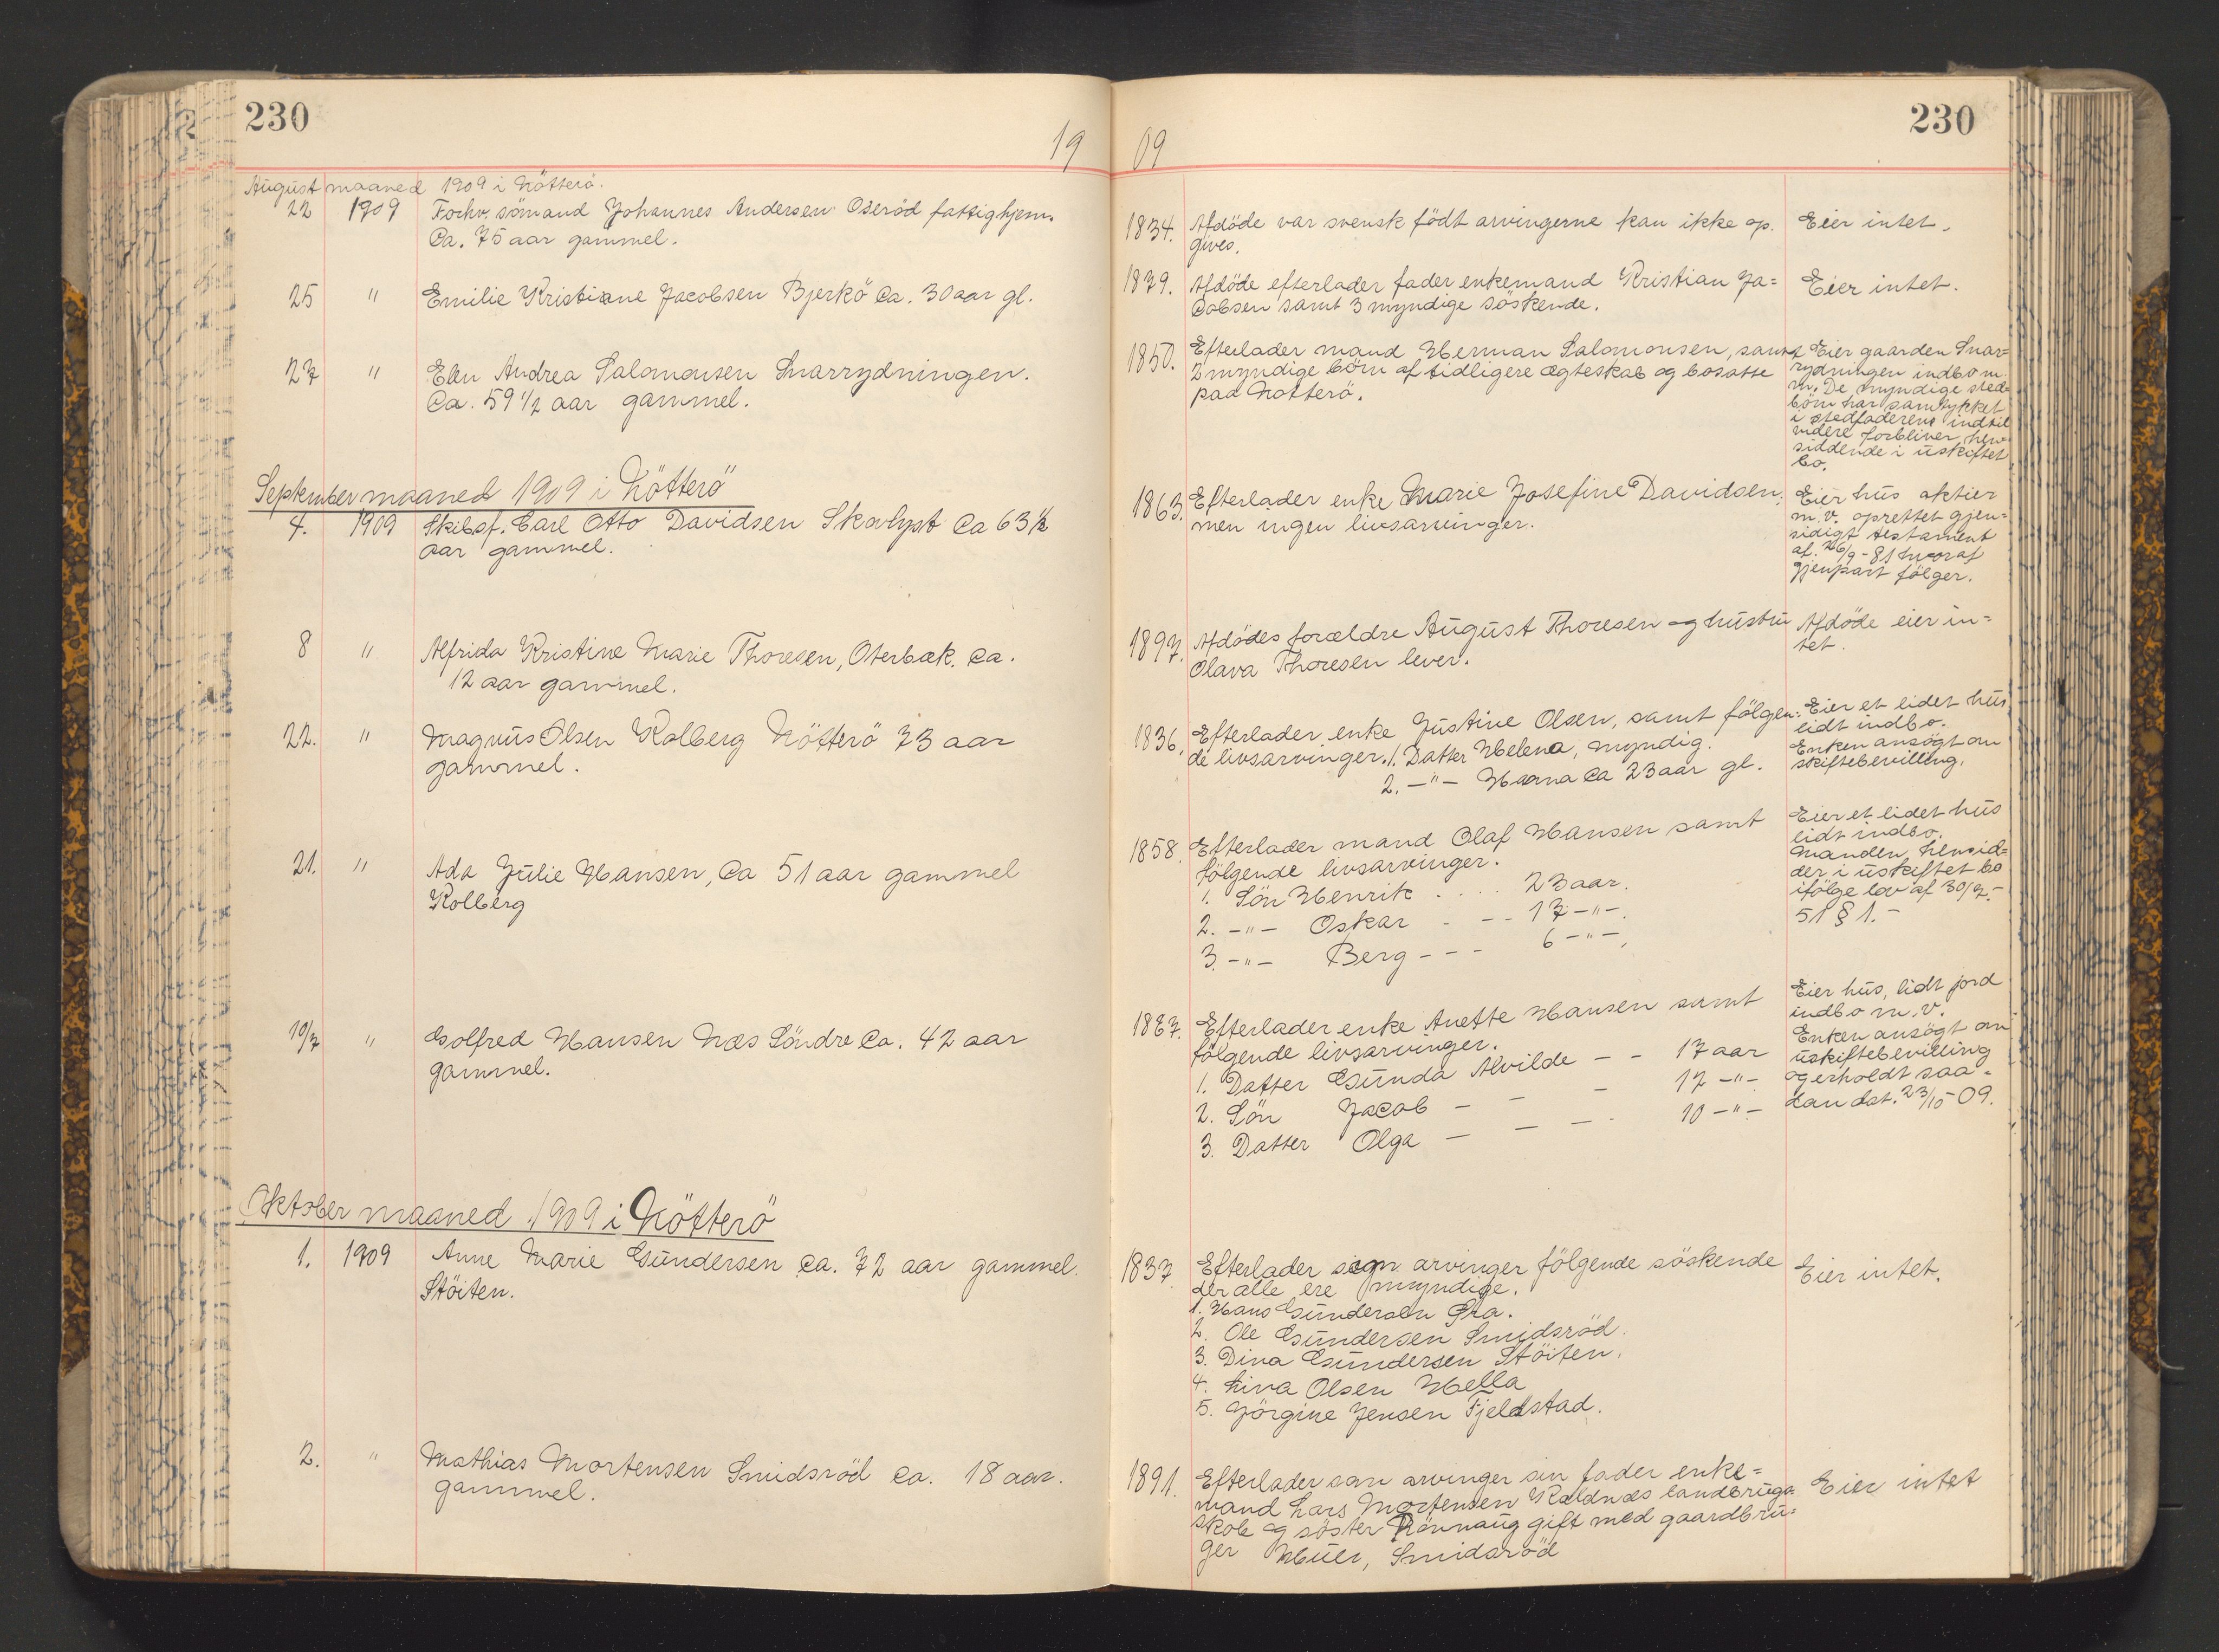 230
19
August maaned 1909 i Nötterö.
22 1909 Forhv. sömand Johannes Andersen Oseröd fattighjem.
Ca. 75 aar gammel.
25 " Emilie Kristiane Jacobsen Bjerkö Ca. 30 aar gl.
27 " Elen Andrea Salomonsen Snarrydningen.
Ca. 59 1/2 aar gammel.
September maaned 1909 i Nötterö
4. 1909 Skibsf. Carl Otto Davidsen Skovlyst Ca 63 1/2
aar gammel.
8 " Alfrida Kristine Marie Thoresen, Oterbæk. Ca.
12 aar gammel.
22. " Magnus Olsen Kolberg Nötterö 73 aar
gammel.
21. " Ada Julie Hansen, Ca 51 aar gammel
Kolberg
19/7 " Golfred Hansen Næs Söndre Ca. 42 aar
gammel.
Oktober maaned 1909 i Nötterö
1. 1909 Anne Marie Gundersen Ca. 72 aar gammel.
Stöiten.
2. " Mathias Mortensen Smidsröd Ca. 18 aar.
gammel.
230
09
1834. Afdöde var svensk födt arvingerne kan ikke op-
gives.
Eier intet.
1879. Afdöde efterlader fader enkemand Kristian Ja=
cobsen samt 3 myndige söskende.
Eier intet.
1850. Efterlader mand Herman Salomonsen, samt
2 myndige börn af tidligere ægteskab og bosatte
paa Nötterö.
Eier gaarden Snar=
rydningen indbo m.
m. De myndige sted=
börn har samtykket
i stedfaderens indtil
videre forbliver hen=
siddende i uskiftet
bo.
1863. Efterlader enke Marie Josefine Davidsen,
men ingen livsarvinger.
Eier hus aktier
m.v. oprettet gjen=
sidigt testament
af 26/9-81 hvoraf
gjenpart fölger.
1897. Afdödes forældre August Thoresen og hustru
Olava Thoresen lever.
Afdöde eier in=
tet.
1836. Efterlader enke Justine Olsen, samt fölgen=
de livsarvinger. 1. Datter Helena, myndig.
2. -"- Hanna Ca 23 aar gl.
Eier et lidet hus
lidt indbo.
Enken ansögt om
skiftebevilling.
1858. Efterlader mand Olaf Hansen samt
fölgende livsarvinger.
1. Sön Henrik . . . . 23 aar.
2. -"- Oskar - - - 17 -"-.
3. -"- Berg - - - 6 -"-.
Eier et lidet hus
lidt indbo.
Manden hensid=
der i uskiftet bo
ifölge lov af 30/7-
51 § 1.-
1867. Efterlader enke Anette Hansen samt
fölgende livsarvinger.
1. Datter Gunda Alvilde - - 17 aar
2. Sön Jacob - - - 12 -"-
3. Datter Olga - - - 10 -"-
Eier hus, lidt jord
indbo m.v.
Enken ansögt om
uskiftebevilling
og erholdt saa=
dan dat. 23/10-09.
1837 Efterlader som arvinger fölgende söskende
der alle ere myndige.
1. Hans Gundersen Græ.
2. Ole Gundersen Smidsröd.
3. Dina Gundersen Stöiten.
4. Lina Olsen Hella
5. Jörgine Jensen Fjeldstad.
Eier intet.
1891. Efterlader som arvinger sin fader enke=
mand Lars Mortensen Kaldnæs landbrugs
skole og söster Rönnaug gift med gaardbru=
ger Smidsröd
Eier intet